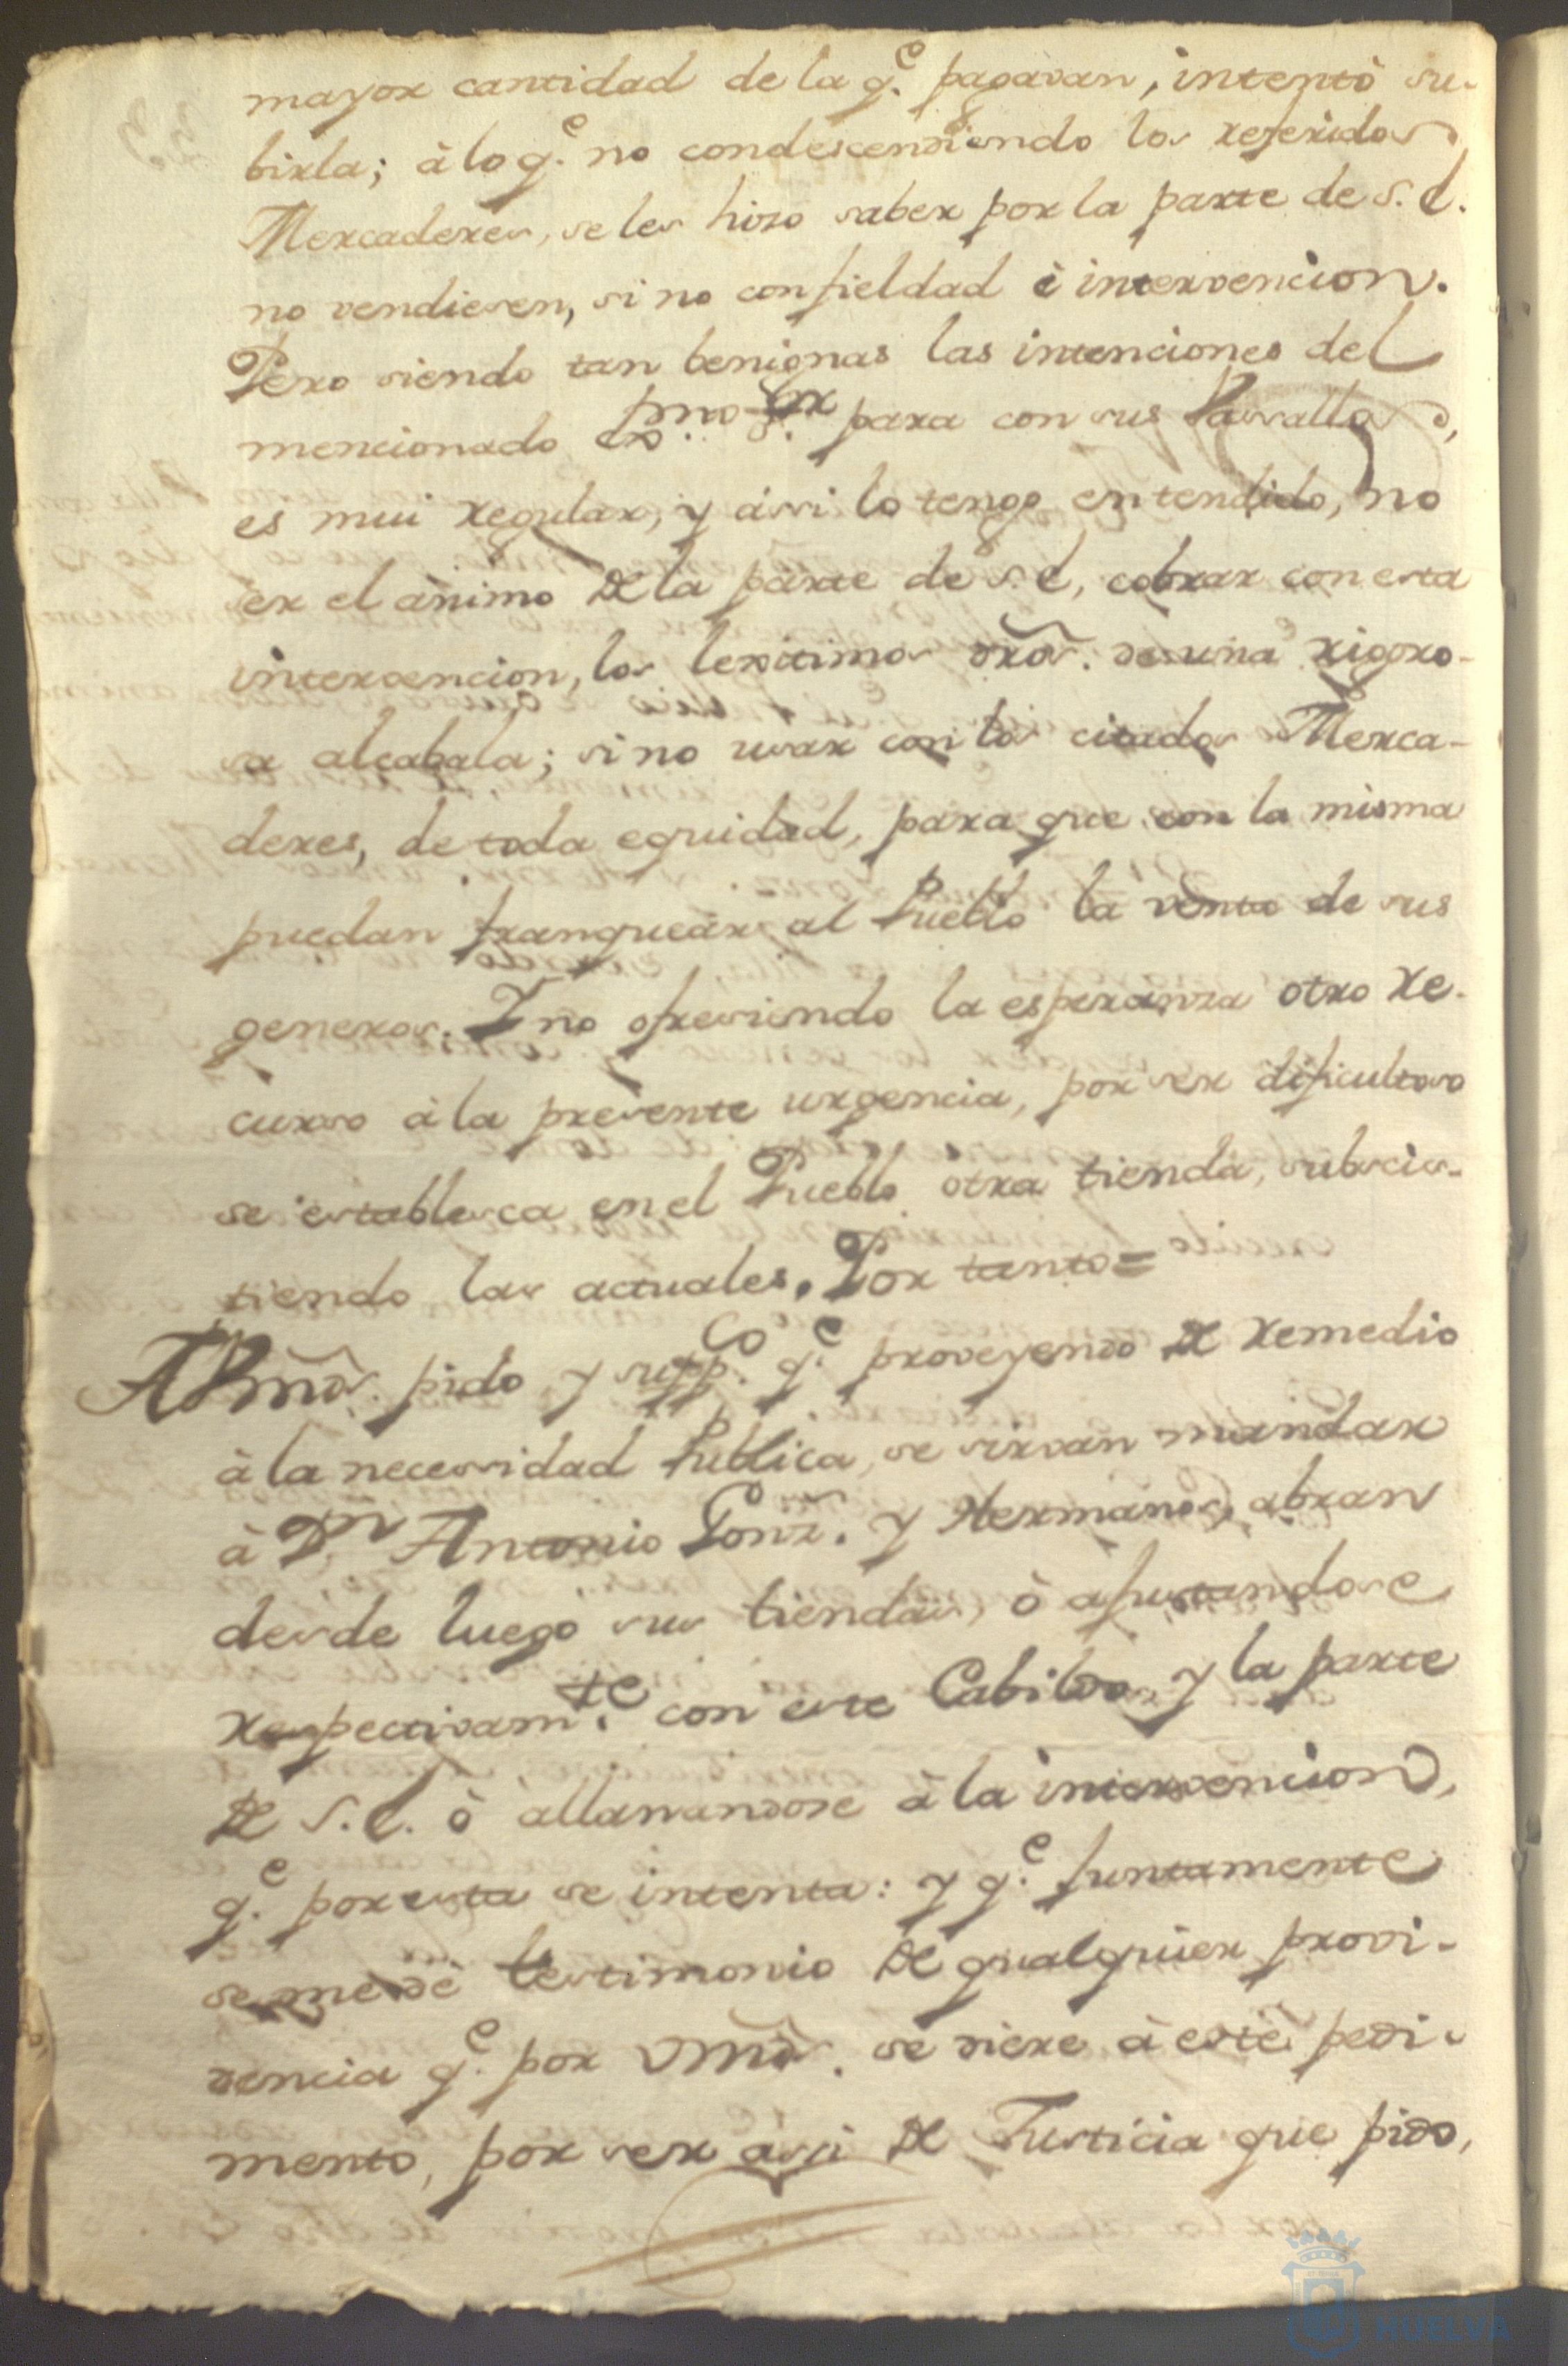 mayor cantidad de la q.e pagavan, intentò su-
birla; à lo q.e no condescendiendo los referidos
Mercaderes, se les hizo saber por la parte de S.E.
no vendiesen, si no con fieldad è intervencion.
Pero siendo tan benignas las intenciones del
mencionado Exmo. Sr. para con sus Vassallos,
es mui regular, y àssi lo tengo entendido, no
ser el ànimo de la parte de S.E, cobrar con esta
intervencion, los lexitimos dros. de una rigoro-
sa alcabala; si no usar con los citados Merca-
deres, de toda equidad, para que con la misma
puedan franquear al Pueblo la venta de sus
generos. Y no ofresiendo la esperanza otro re-
curso à la presente urgencia, por ser dificultoso
se establesca en el Pueblo otra tienda, subsis-
tiendo las actuales. Por tanto=
A Vmds. pido y supp.co q.e proveyendo de remedio
à la necessidad Publica, se sirvan mandar
à D.n Antonio Gonz. y Hermanos, abran
desde luego sus tiendas, ò ajustandose
respectivam.te con este Cabildo, y la parte
de S.E. ò allanandose à la intervencion,
q.e por esta se intenta: y q.e juntamente
se me dè testimonio de qualquier provi-
dencia q.e por Vmds. se diere à este pedi-
mento, por ser àssi de Justicia que pido,
HUELVA